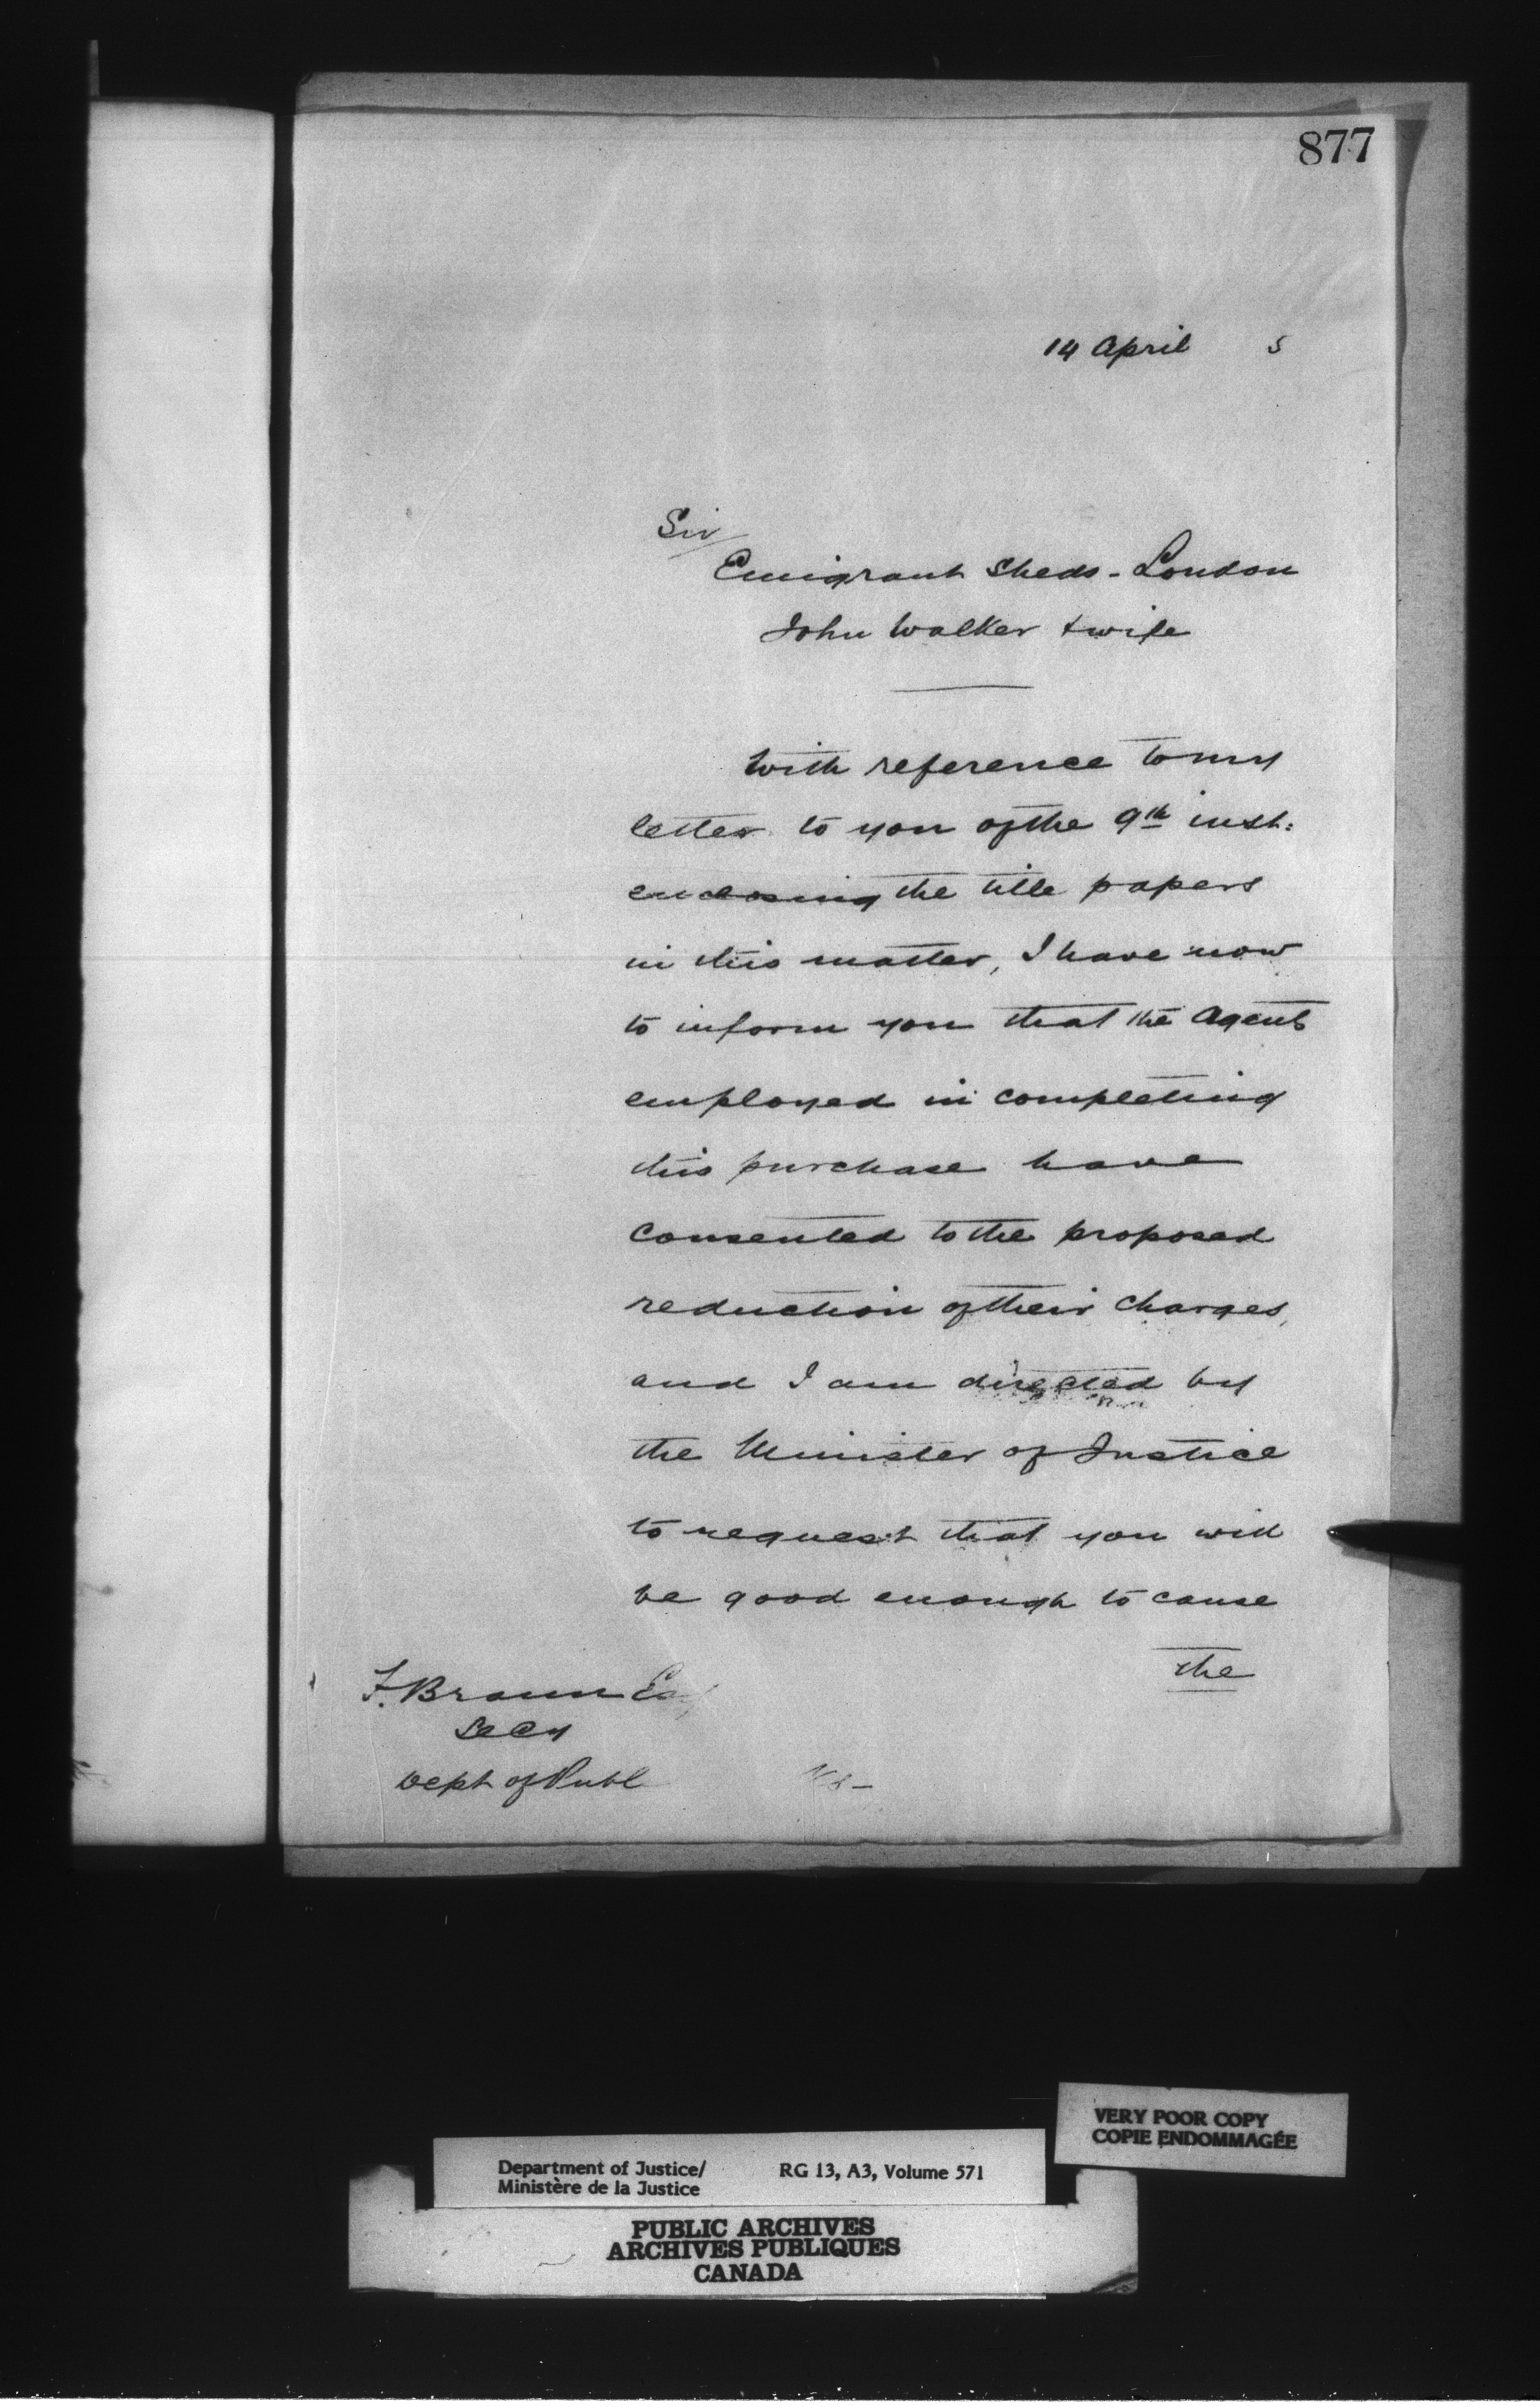 877
14 April 5
Sir/
Emigrant Sheds - London
John Walker & wife
With reference to my
letter to you of the 9th inst:
enclosing the title papers
in this matter, I have now
to inform you that the Agents
employed in completing
this purchase have
consented to the proposed
reduction of their charges,
and I am directed by
the Minister of Justice
to request that you will
be good enough to cause
the
F. Braun Esq
Secy
Dept of Publ
VERY POOR COPY
COPIE ENDOMMAGÉE
Department of Justice/ RG 13, A3, Volume 571
Ministère de la Justice
PUBLIC ARCHIVES
ARCHIVES PUBLIQUES
CANADA